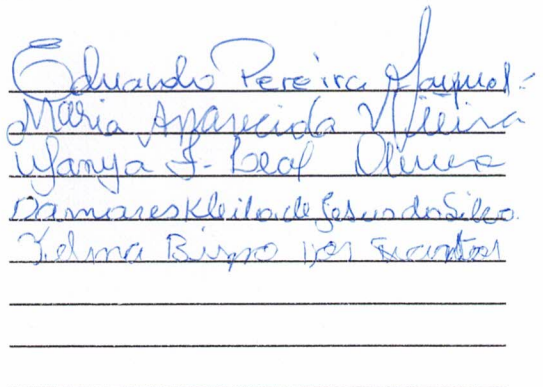 Eduardo Pereira
Maria Aparecida Vieira
F. Leal Oliveira
Damares Kleila de Jesus da Silva
Telma Bispo dos Santos